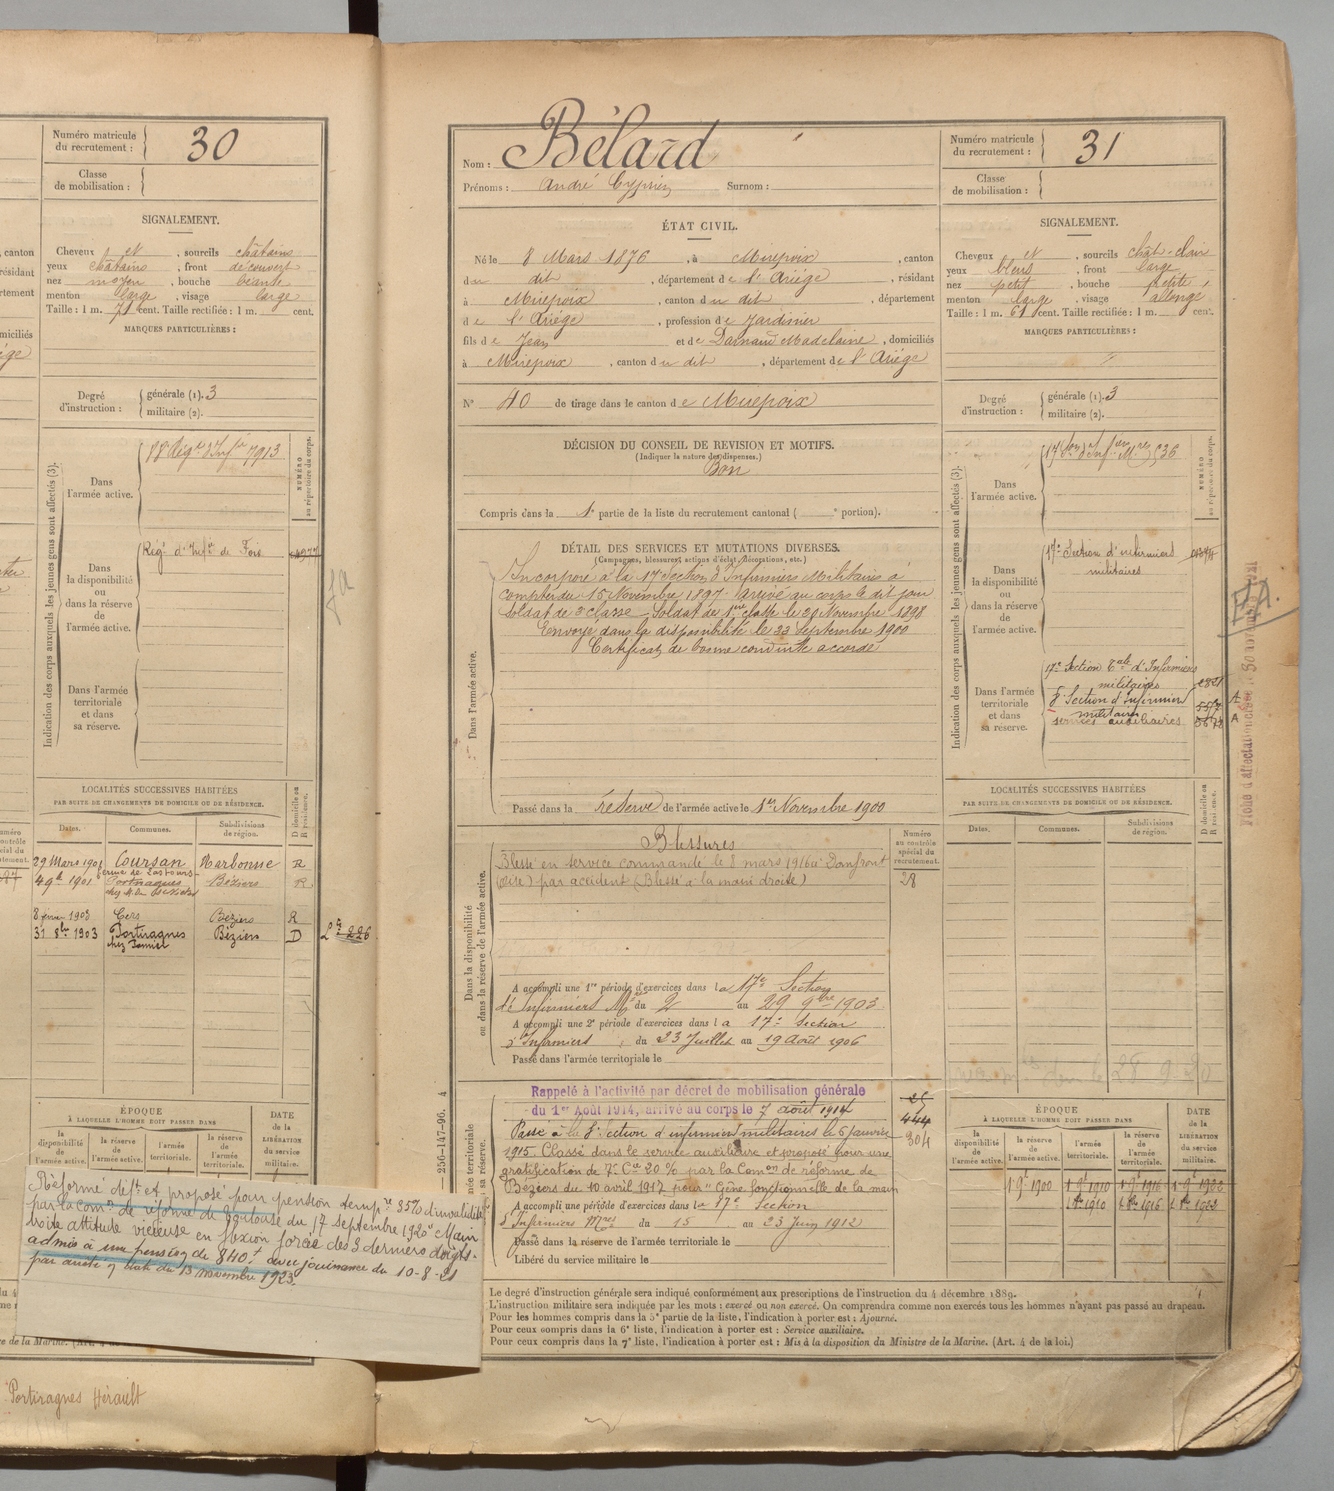 Numéro matricule
du recrutement :
30
Classe
de mobilisation :
SIGNALEMENT.
Cheveux et , sourcils châtains
yeux châtains , front découvert
nez moyen , bouche béante
menton large , visage large
Taille : 1 m. 71 cent. Taille rectifiée : 1 m. cent.
MARQUES PARTICULIÈRES :
Degré
d'instruction :
générale (1). 3
militaire (2).
Indication des corps auxquels les jeunes gens sont affectés (3).
NUMÉRO
au répertoire du corps.
Dans
l'armée active.
Dans
la disponibilité
ou
dans la réserve
de
l'armée active.
Régt d'Infie de Foix
Dans l'armée
territoriale
et dans
sa réserve.
LOCALITÉS SUCCESSIVES HABITÉES
PAR SUITE DE CHANGEMENTS DE DOMICILE OU DE RÉSIDENCE.
Dates.
Communes.
Subdivisions
de région.
D domicile ou
R résidence.
29 Mars 1901 Coursan Narbonne R
4 9b 1901 Portiragnes Béziers R
8 février 1903 Cers Béziers R
31 8bre 1903 Portiragnes Béziers D
ÉPOQUE
À LAQUELLE L'HOMME DOIT PASSER DANS
la
disponibilité
de
l'armée active.
la réserve
de
l'armée active.
l'armée
territoriale.
la réserve
de l'armée
territoriale.
DATE
de la
LIBÉRATION
du service
militaire.
Réformé deft et proposé pour pension tempre 35% d'invalidité
par la comon de réforme de Toulouse du 17 septembre 1920 "Main
droite attitude vicieuse en flexion forcée des 3 derniers doigts."
admis à une pension de 840f avec jouissance du 10-8-21
par arrêté en date du 13 novembre 1923.
Portiragnes Hérault
Nom : Bélard
Prénoms : André Cyprien Surnom :
Numéro matricule
du recrutement :
31
Classe
de mobilisation :
ÉTAT CIVIL.
Né le 8 Mars 1876 , à Mirepoix , canton
du dit , département de l'Ariége , résidant
à Mirepoix , canton du dit , département
de l'Ariége , profession de Jardinier
fils de Jean et de Darnaud Madelaine , domiciliés
à Mirepoix , canton du dit , département de l'Ariége
N° 40 de tirage dans le canton de Mirepoix
DÉCISION DU CONSEIL DE REVISION ET MOTIFS.
(Indiquer la nature des dispenses.)
Bon
Compris dans la 1e partie de la liste du recrutement cantonal ( e portion).
DÉTAIL DES SERVICES ET MUTATIONS DIVERSES.
(Campagnes, blessures, actions d'éclat, décorations, etc.)
Dans l'armée active.
Incorporé à la 17e Section d'Infirmiers Militaires à
compter du 15 Novembre 1897. Arrivé au corps le dit jour
Soldat de 2e classe. Soldat de 1ere classe le 29 Novembre 1898
Envoyé dans la disponibilité le 23 Septembre 1900
Certificat de bonne conduite accordé
Passé dans la réserve de l'armée active le 1er Novembre 1900
Dans la disponibilité
ou dans la réserve de l'armée active.
Numéro
au contrôle
spécial du
recrutement.
Blessures
Blessé en service commandé le 8 mars 1916 à Domfront
(Oise) par accident (Blessé à la main droite)
28
A accompli une 1re période d'exercices dans la 17e Section
d'Infirmiers Mres du 2 au 29 9bre 1903
A accompli une 2e période d'exercices dans la 17e Section
d'Infirmiers du 23 Juillet au 19 août 1906
Passé dans l'armée territoriale le
Rappelé à l'activité par décret de mobilisation générale
du 1er Août 1914, arrivé au corps le 7 août 1914
Passé à la 8e Section d'infirmiers militaires le 5 janvier
1915. Classé dans le service auxiliaire et proposé pour une
gratification de 7e Cie 20 % par la Comon de réforme de
Béziers du 10 avril 1917 pour "Gêne fonctionnelle de la main
A accompli une période d'exercices dans la 17e Section
d'Infirmiers Mres du 15 au 23 Juin 1912
Passé dans la réserve de l'armée territoriale le
Libéré du service militaire le
444
304
SIGNALEMENT.
Cheveux et , sourcils chât-clair
yeux bleus , front large
nez petit , bouche petite
menton large , visage allongé
Taille : 1 m. 61 cent. Taille rectifiée : 1 m. cent.
MARQUES PARTICULIÈRES :
Degré
d'instruction :
générale (1). 3
militaire (2).
Indication des corps auxquels les jeunes gens sont affectés (3).
NUMÉRO
au répertoire du corps.
Dans
l'armée active.
Dans
la disponibilité
ou
dans la réserve
de
l'armée active.
17e Section d'infirmiers
militaires
Dans l'armée
territoriale
et dans
sa réserve.
17e Section Tale d'Infirmiers
militaires
8e Section d'infirmiers
militaires
services auxiliaires
LOCALITÉS SUCCESSIVES HABITÉES
PAR SUITE DE CHANGEMENTS DE DOMICILE OU DE RÉSIDENCE.
Dates.
Communes.
Subdivisions
de région.
D domicile ou
R résidence.
ÉPOQUE
À LAQUELLE L'HOMME DOIT PASSER DANS
la
disponibilité
de
l'armée active.
la réserve
de
l'armée active.
l'armée
territoriale.
la réserve
de l'armée
territoriale.
DATE
de la
LIBÉRATION
du service
militaire.
Le degré d'instruction générale sera indiqué conformément aux prescriptions de l'instruction du 4 décembre 1889.
L'instruction militaire sera indiquée par les mots : exercé ou non exercé. On comprendra comme non exercés tous les hommes n'ayant pas passé au drapeau.
Pour les hommes compris dans la 5e partie de la liste, l'indication à porter est : Ajourné.
Pour ceux compris dans la 6e liste, l'indication à porter est : Service auxiliaire.
Pour ceux compris dans la 7e liste, l'indication à porter est : Mis à la disposition du Ministre de la Marine. (Art. 4 de la loi.)